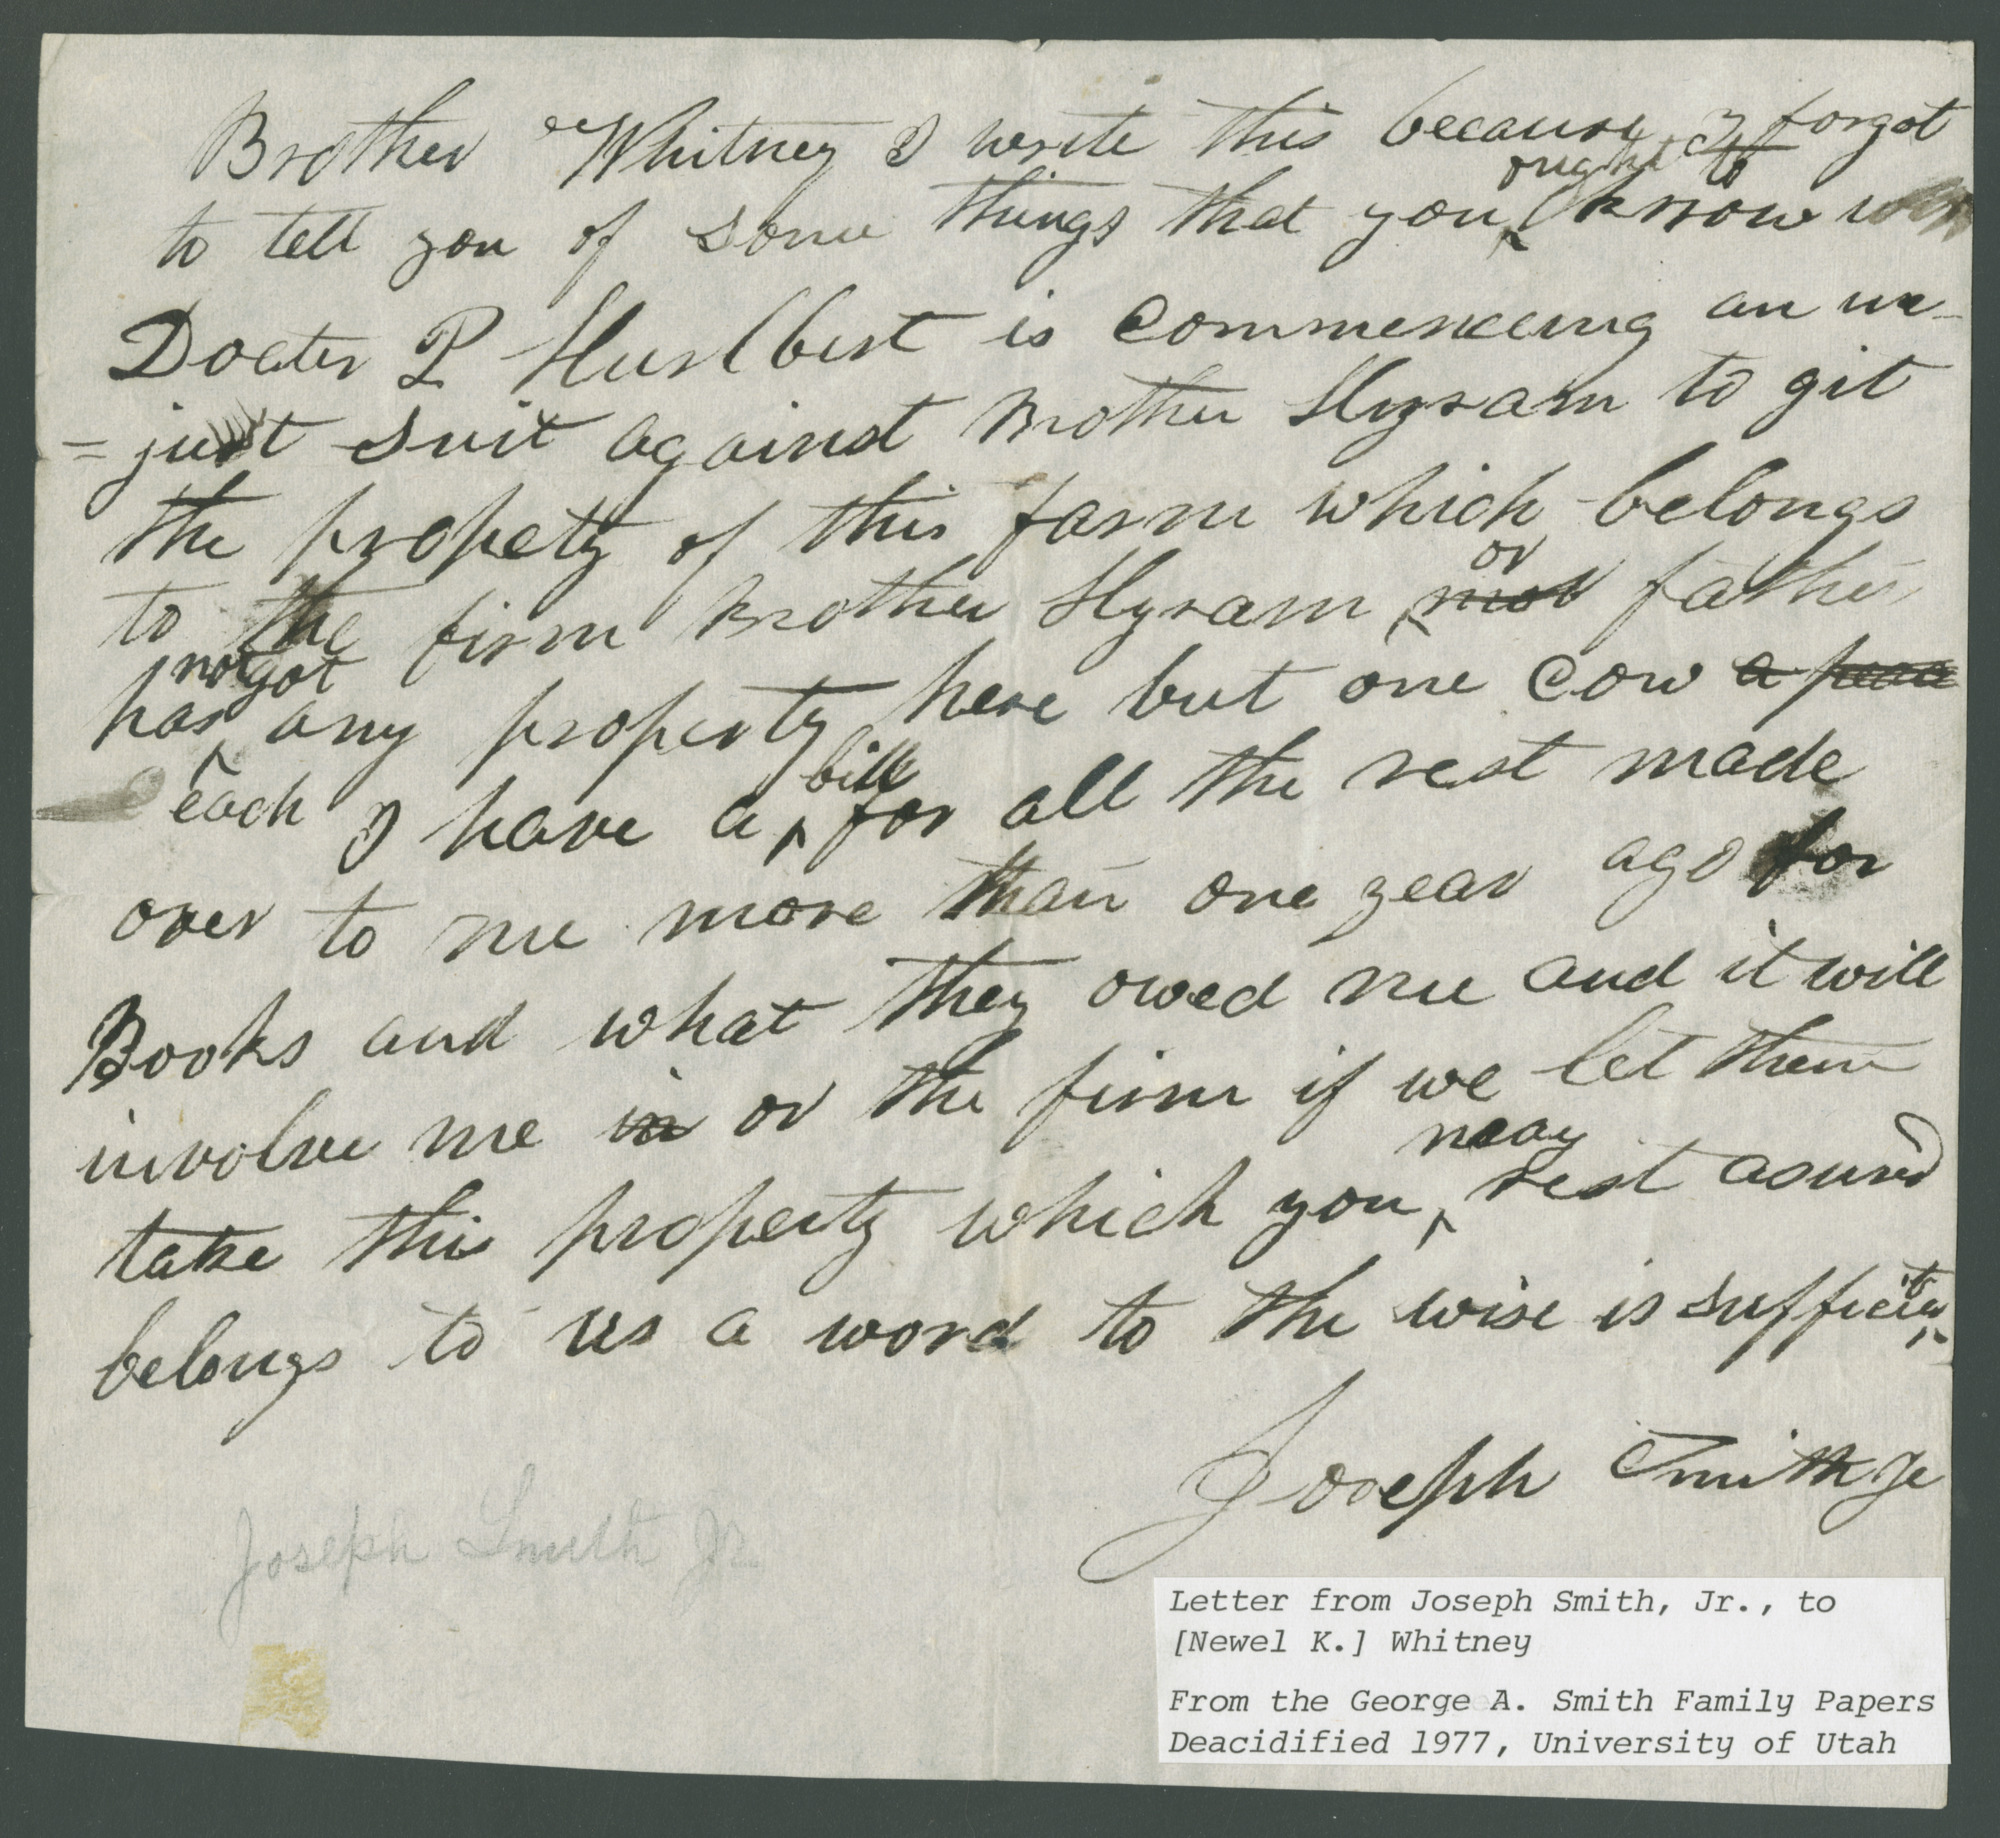 Brother Whitney I write this because I forgot
to tell you of some things that you ought to know
Docter P Hurlbert is commenceing an un-
=just suit against Brother Hyram to git
the propety of this farm which belongs
to the firm Brother Hyram or nor father
has not got any property here but one cow a
each I have a bill for all the rest made
over to me more than one year ago for
Books and what they owed me and it will
involve me in or the firm if we let them
take this property which you may rest asured
belongs to us a word to the wise is
Joseph Smith Jr
Joseph Smith Jr.
Letter from Joseph Smith, Jr., to
[Newel K.] Whitney
From the George A. Smith Family Papers
Deacidified 1977, University of Utah